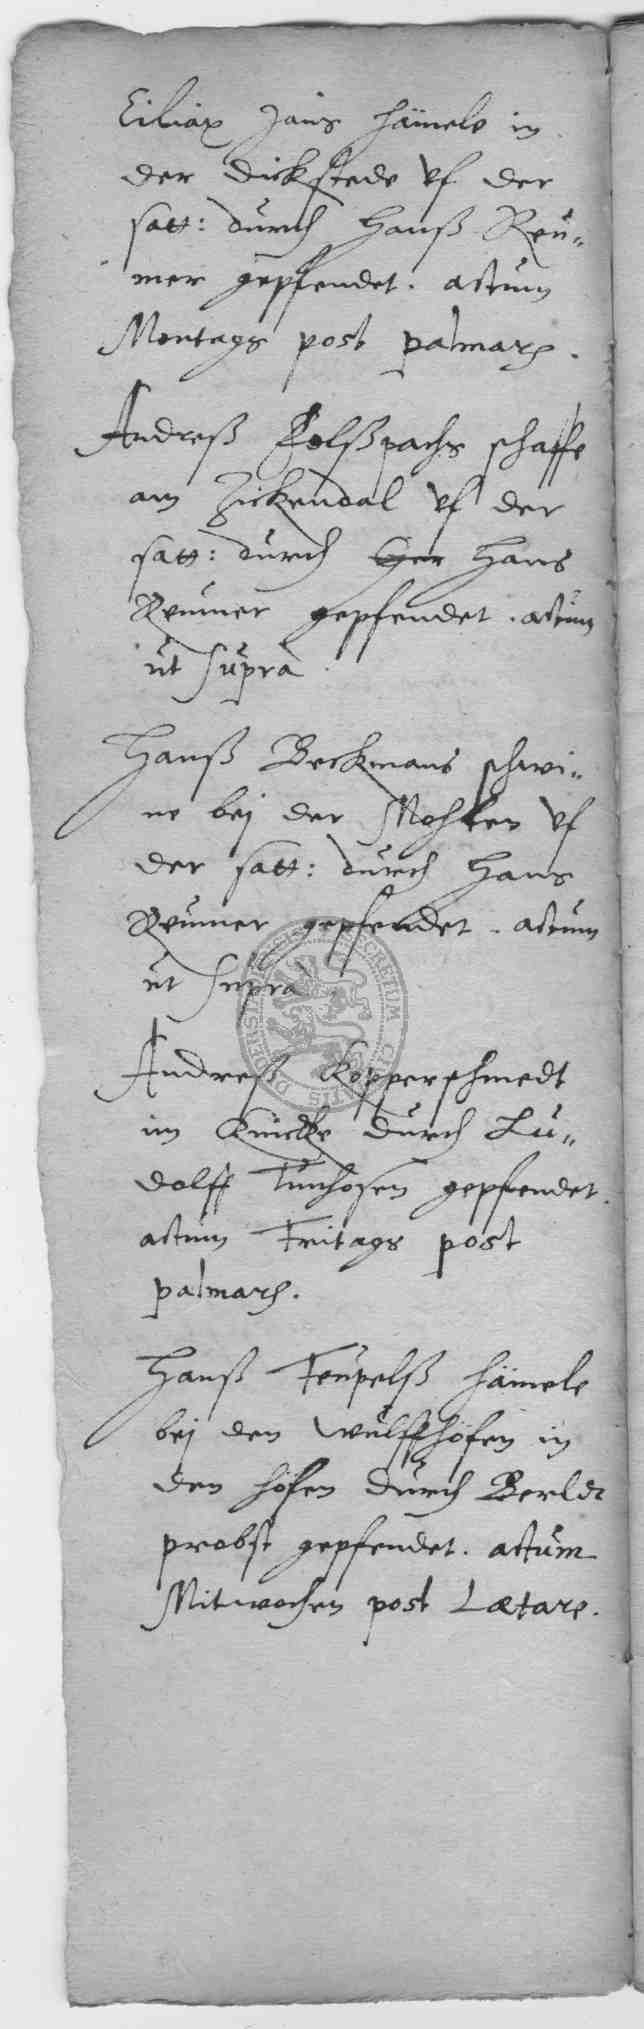 Ciliax Jans hämele in
der dickstede vf der
satt: durch Hanß Reu-
mer gepfendet. actum
Montags post palmarum.
Andreß Folßpachs schaffe
am Zickendal vf der
satt: durch Hans
Reumer gepfendet. actum
ut supra
Hanß Beckmans schwi-
ne bej der Mohlen vf
der satt: durch Hans
Reumer gepfendet. actum
ut supra
Andreß Kopperschmedt
im durch Lu-
dolff Tunhosen gepfendet.
actum Fritags post
palmarum.
Hanß Teupelß hämele
bej den wulffhöfen in
den höfen durch Berldt
probst gepfendet. actum
Mitwochen post Lætare.